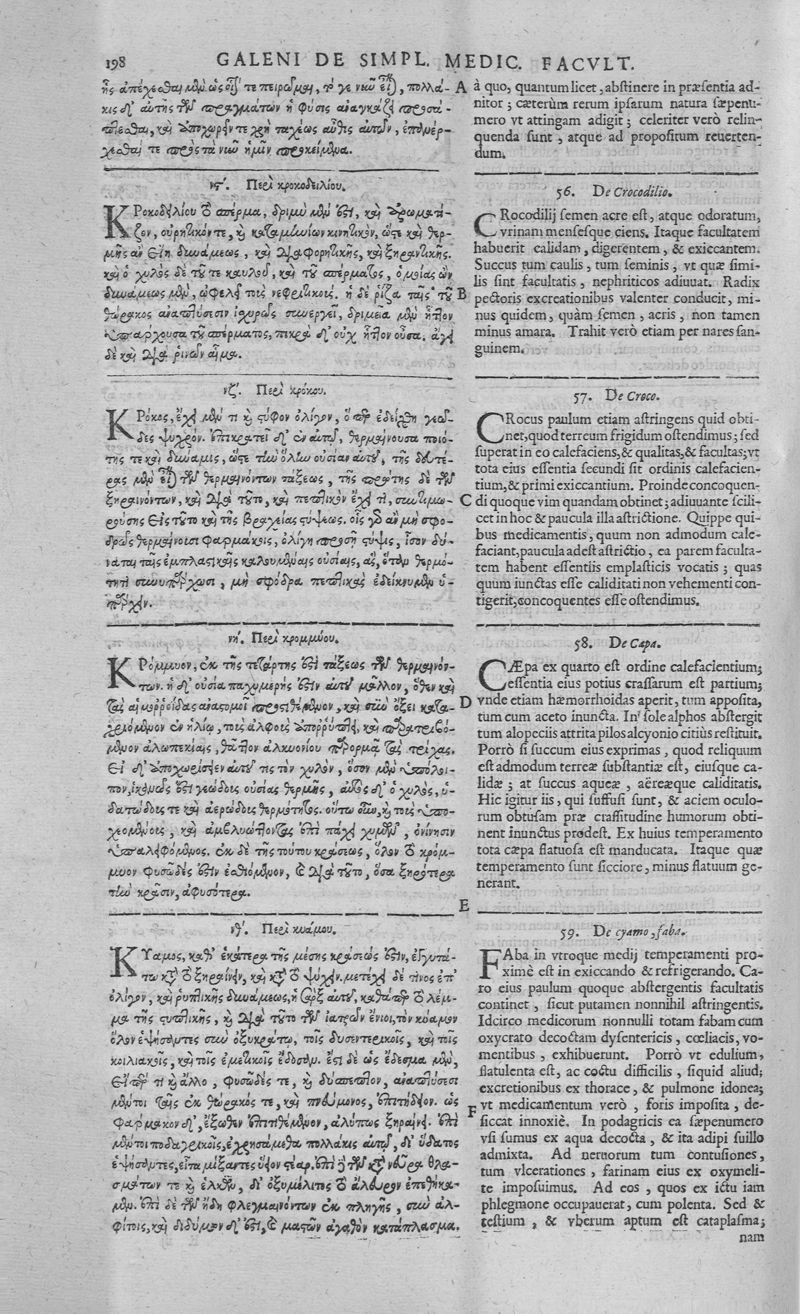 198 GALENI DE SIMPL. MEDIC. FACVLT.
ἧς ἀπέχεσθαι μὲν ὡς οἷόν τε πειρῶμαι, τό γε νῦν εἶναι, πολλά-
κις δ' αὐτῆς τῶν πραγμάτων ἡ φύσις ἀναγκάζει προσά-
πτεσθαι, καὶ ὑποχωρεῖν τε χρὴ ταχέως αὖθις αὐτῶν, ἐπανέρ-
χεσθαί τε πρὸς τὰ νῦν ἡμῖν προκείμενα.
νστ'. Περὶ κροκοδειλίου.
ΚΡοκοδειλίου τὸ σπέρμα, δριμὺ μὲν ἐστὶ, καὶ ἀρωματί-
ζον, οὐρητικόν τε, καὶ καταμηνίων κινητικὸν, ὥστε καὶ θερ-
μῆς ἂν εἴη δυνάμεως, καὶ διαφορητικῆς, καὶ ξηραντικῆς.
καὶ ὁ χυλὸς δὲ τοῦ τε καυλοῦ, καὶ τοῦ σπέρματος, ὁμοίας ὢν
δυνάμεως μὲν, ὠφελεῖ τοὺς νεφριτικούς. ἡ δὲ ῥίζα ταῖς τοῦ
θώρακος ἀναπτύσεσιν ἰσχυρῶς συνεργεῖ, δριμεῖα μὲν ἧττον
ὑπάρχουσα τοῦ σπέρματος, πικρὰ δ' οὐχ ἧττον οὖσα. ἄγει
δὲ καὶ διὰ ῥινῶν αἷμα.
νζ'. Περὶ κρόκου.
ΚΡόκος, ἔχει μέν τι καὶ στύφον ὀλίγον, ὅπερ ἐδείχθη γεῶ-
δες ψυχρόν. ἐπικρατεῖ δ' ἐν αὐτῷ, θερμαίνουσα ποιό-
της τε καὶ δύναμις, ὥστε τὴν ὅλην οὐσίαν αὐτοῦ, τῆς δευτέ-
ρας μὲν εἶναι τῶν θερμαινόντων τάξεως, τῆς πρώτης δὲ τῶν
ξηραινόντων, καὶ διὰ τοῦτο, καὶ πεπτικὸν ἔχει τί, συντιμω-
ρούσης εἰς τοῦτο καὶ τῆς βραχείας στύψεως. οἷς γὰρ ἂν μὴ σφο-
δρῶς θερμαίνουσι φαρμάκοις, ὀλίγη προσῇ στύψις, ἴσον δύ-
ναται ταῖς ἐμπλαστικῆς καλουμέναις οὐσίαις, ἃς, ὅταν θερμό-
τητι συνυπάρχωσι, μὴ σφόδρα πεπτικὰς ἐδείκνυμεν ὑ-
πάρχειν.
νη'. Περὶ κρομμύου.
ΚΡόμμυον, ἐκ τῆς τετάρτης ἐστὶ τάξεως τῶν θερμαινόν-
των. ἡ δ' οὐσία παχυμερής ἐστιν αὐτοῦ μᾶλλον, ὅθεν καὶ
τὰς αἱμοῤῥοΐδας ἀναστομοῖ προστιθέμενον, καὶ σὺν ὄξει κατα-
χριόμενον ἐν ἡλίῳ, τοὺς ἀλφοὺς ἀποῤῥύπτει, καὶ παρατριβό-
μενον ἀλωπεκίαις, θᾶττον ἀλκυονίου παρορμᾷ τὰς τρίχας.
εἰ δ' ἀποχωρίσειεν αὐτοῦ τις τὸν χυλὸν, ὅσον μὲν ὑπόλοι-
πον, ἱκανῶς ἐστὶ γεώδους οὐσίας θερμῆς, αὐτὸς δ' ὁ χυλὸς, ὑ-
δατώδους τε καὶ ἀερώδους θερμότητος. οὕτω οὖν, καὶ τοὺς ὑπο-
χεομένους, καὶ ἀμβλυώττοντας ἐπὶ πάχει χυμῶν, ὀνίνησιν
ὑπαλειφόμενος. ἐκ δὲ τῆς τούτου κράσεως, ὅλον τὸ κρόμ-
μυον φυσῶδές ἐστιν ἐσθιόμενον, καὶ διὰ τοῦτο, ὅσα ξηρότερα
τὴν κρᾶσιν, ἀφυσότερα.
νθ'. Περὶ κυάμου.
ΚΥαμος, καθ' ἑκάτερα τῆς μέσης κράσεώς ἐστιν, ἐγγυτά-
τω κατὰ τὸ ξηραίνειν, καὶ κατὰ τὸ ψύχειν. μετέχει δέ τινος ἐπ'
ὀλίγον, καὶ ῥυπτικῆς δυνάμεως, ἡ σὰρξ αὐτοῦ, καθάπερ τὸ λέμ-
μα τῆς στυπτικῆς, καὶ διὰ τοῦτο τῶν ἰατρῶν ἔνιοι, τὸν κύαμον
ὅλον ἑψήσαντες σὺν ὀξυκράτῳ, τοῖς δυσεντερικοῖς, καὶ τοῖς
κοιλιακοῖς, καὶ τοῖς ἐμετικοῖς ἔδοσαν. ἔστι δὲ ὡς ἔδεσμα μὲν,
εἴπερ τι καὶ ἄλλο, φυσῶδές τε, καὶ δύσπεπτον, ἀναπτύσεσι
μέντοι ταῖς ἐκ θώρακός τε, καὶ πνεύμονος, ἐπιτήδειον. ὡς
φάρμακον δ', ἔξωθεν ἐπιτιθέμενον, ἀλύπως ξηραίνει. ἐπὶ
μέντοι ποδαγρικοῖς, ἐχρησάμεθα πολλάκις αὐτῷ, δι' ὕδατος
ἑψήσαντες, εἶτα μίξαντες ὕειον στέαρ. ἐπὶ δὲ τῶν κατὰ νεῦρα θλα-
σμάτων τε καὶ ἑλκῶν, δι' ὀξυμέλιτος τὸ ἄλευρον ἐπεθήκα-
μεν. ἐπὶ δὲ τῶν ἤδη φλεγμαινόντων ἐκ πληγῆς, σὺν ἀλ-
φίτοις, καὶ διδύμων δ' ἐστὶ, καὶ μαστῶν ἀγαθὸν κατάπλασμα.
A
B
C
D
E
F
à quo, quantum licet, abstinere in præsentia ad-
nitor; cæterùm rerum ipsarum natura sæpenu-
mero vt attingam adigit; celeriter verò relin-
quenda sunt, atque ad propositum reuerten-
dum.
56. De Crocodilio.
CRocodilij semen acre est, atque odoratum,
vrinam mensesque ciens. Itaque facultatem
habuerit calidam, digerentem, & exiccantem.
Succus tum caulis, tum seminis, vt quæ simi-
lis sint facultatis, nephriticos adiuuat. Radix
pectoris excreationibus valenter conducit, mi-
nus quidem, quàm semen, acris, non tamen
minus amara. Trahit verò etiam per nares san-
guinem.
57. De Croco.
CRocus paulum etiam astringens quid obti-
net, quod terreum frigidum ostendimus; sed
superat in eo calefaciens, & qualitas, & facultas; vt
tota eius essentia secundi sit ordinis calefacien-
tium, & primi exiccantium. Proinde concoquen-
di quoque vim quandam obtinet; adiuuante scili-
cet in hoc & paucula illa astrictione. Quippe qui-
bus medicamentis, quum non admodum cale-
faciant, paucula adest astrictio, ea parem faculta-
tem habent essentiis emplasticis vocatis; quas
quum iunctas esse caliditati non vehementi con-
tigerit, concoquentes esse ostendimus.
58. De Cæpa.
CÆpa ex quarto est ordine calefacientium;
essentia eius potius crassarum est partium;
vnde etiam hæmorrhoidas aperit, tum apposita,
tum cum aceto inuncta. In sole alphos abstergit
tum alopeciis attrita pilos alcyonio citiùs restituit.
Porrò si succum eius exprimas, quod reliquum
est admodum terreæ substantiæ est, eiusque ca-
lidæ; at succus aqueæ, aëreæque caliditatis.
Hic igitur iis, qui suffusi sunt, & aciem oculo-
rum obtusam præ crassitudine humorum obti-
nent inunctus prodest. Ex huius temperamento
tota cæpa flatuosa est manducata. Itaque quæ
temperamento sunt sicciore, minus flatuum ge-
nerant.
59. De cyamo, faba.
FAba in vtroque medij temperamenti pro-
ximè est in exiccando & refrigerando. Ca-
ro eius paulum quoque abstergentis facultatis
continet, sicut putamen nonnihil astringentis.
Idcirco medicorum nonnulli totam fabam cum
oxycrato decoctam dysentericis, cœliacis, vo-
mentibus, exhibuerunt. Porrò vt edulium,
flatulenta est, ac coctu difficilis, siquid aliud;
excretionibus ex thorace, & pulmone idonea;
vt medicamentum verò, foris imposita, de-
siccat innoxiè. In podagricis ea sæpenumero
vsi sumus ex aqua decocta, & ita adipi suillo
admixta. Ad neruorum tum contusiones,
tum vlcerationes, farinam eius ex oxymeli-
te imposuimus. Ad eos, quos ex ictu iam
phlegmone occupauerat, cum polenta. Sed &
testium, & vberum aptum est cataplasma;
nam